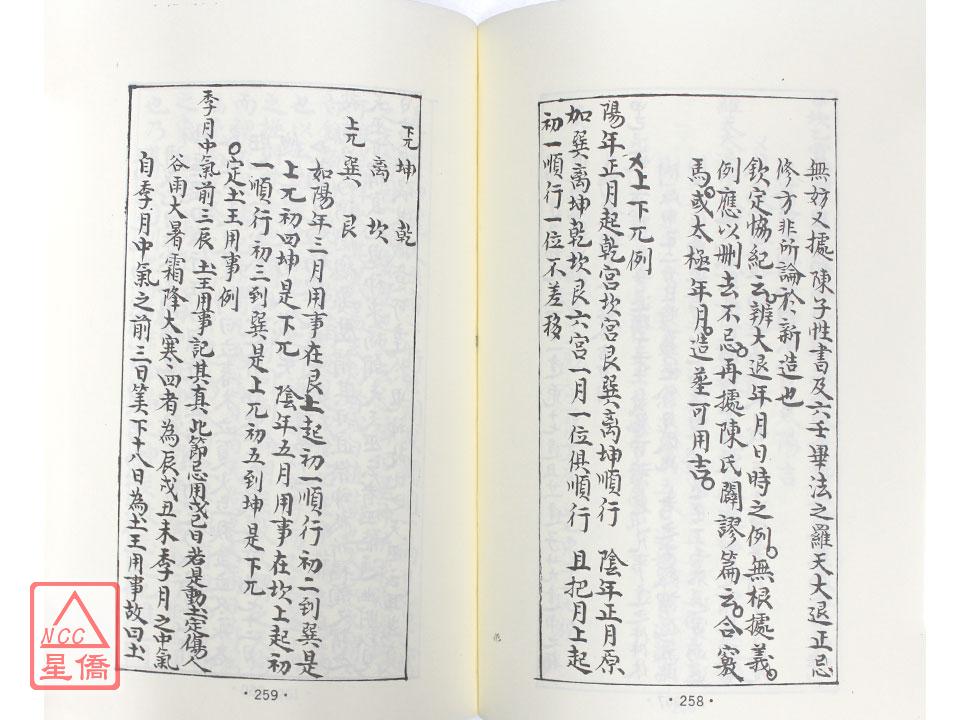 無妨又據陳子性書及六壬畢法之羅天大退正忌
修方非所論於新造也
欽定協紀云辨大退年月日時之例無根據義
例應以刪去不忌再據陳氏闢謬篇云合竅
馬或太極年月造塟可用吉
上下兀例
陽年正月起乾宮坎宮艮巽离坤順行 陰年正月原
加巽离坤乾坎艮六宮一月一位俱順行 且把月上起
初一順行一位不差移
·258·
下兀 坤 乾
离 坎
上兀 巽 艮
如陽年三月用事在艮上起初一順行初二到巽是
上兀初四坤是下兀 陰年五月用事在坎上起初
一順行初三到巽是上兀初五到坤是下兀
定土王用事例
季月中氣前三辰土王用事記其真此節忌用戊己日若是動土定傷人
谷雨大暑霜降大寒四者為辰戌丑未季月之中氣
自季月中氣之前三日筭下十八日為土王用事故曰土
·259·
NCC
星僑